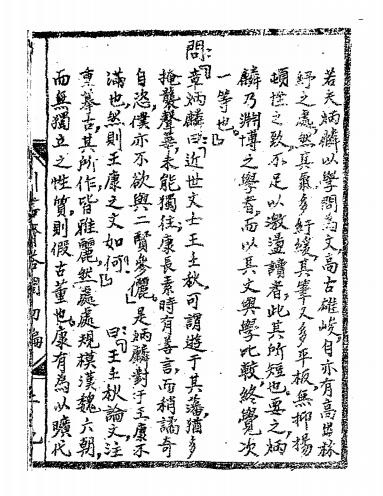 若夫炳麟以學問為文高古雄峻自亦有高出林
紓之處然其氣多紆緩其筆又多平板無抑揚
頓挫之致不足以激盪讀者此其所短也要之炳
麟乃淵博之學者而以其文與學比較終覺次
一等也
問章炳麟曰近世文士王壬秋可謂遊于其藩猶多
掩襲聲華未能獨往康長素時有善言而稍譎奇
自恣僕亦不欲與二賢參儷是炳麟對于王康不
滿也然則王康之文如何 曰王壬秋論文注
重摹古其所作皆雅麗然處處規模漢魏六朝
而無獨立之性質則假古董也康有為以曠代